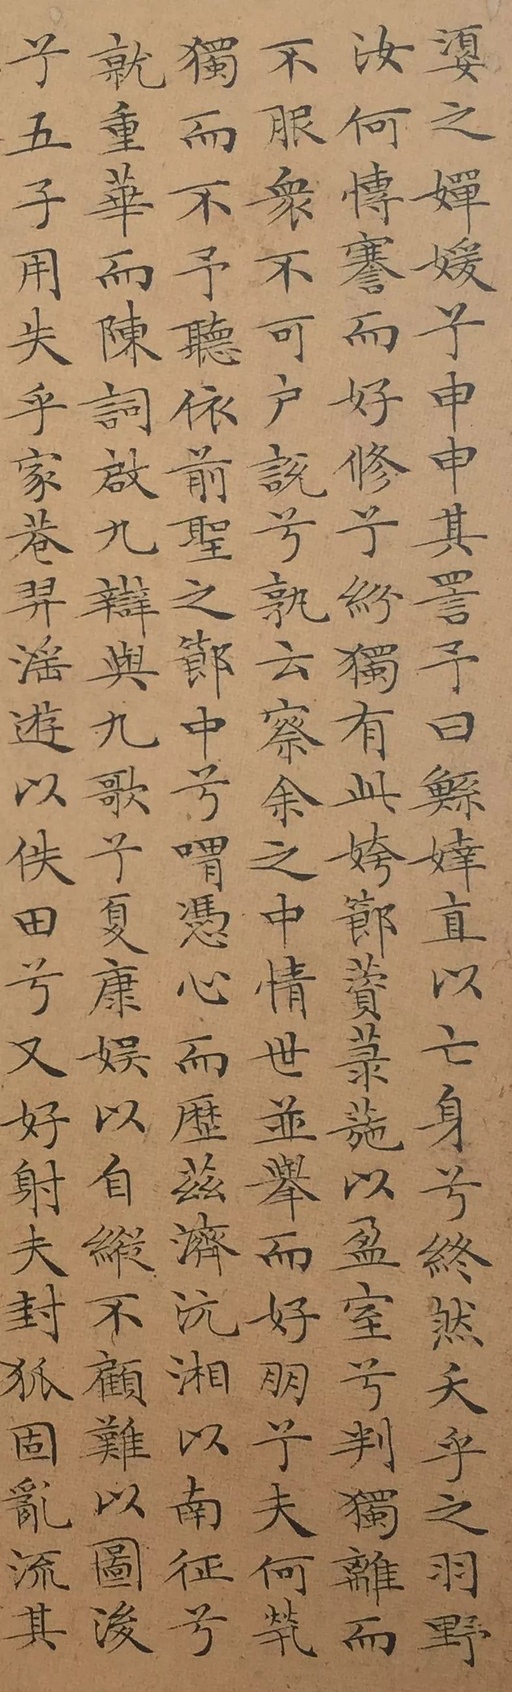 媭之嬋媛兮申申其詈予曰鯀婞直以亡身兮終然夭乎之羽野
汝何博謇而好修兮紛獨有此姱節薋菉葹以盈室兮判獨離而
不服衆不可户說兮孰云察余之中情世並舉而好朋兮夫何煢
獨而不予聽依前聖之節中兮喟憑心而歷茲濟沅湘以南征兮
就重華而陳詞啟九辯與九歌兮夏康娱以自縱不顧難以圖後
兮五子用失乎家巷羿淫遊以佚田兮又好射夫封狐固亂流其